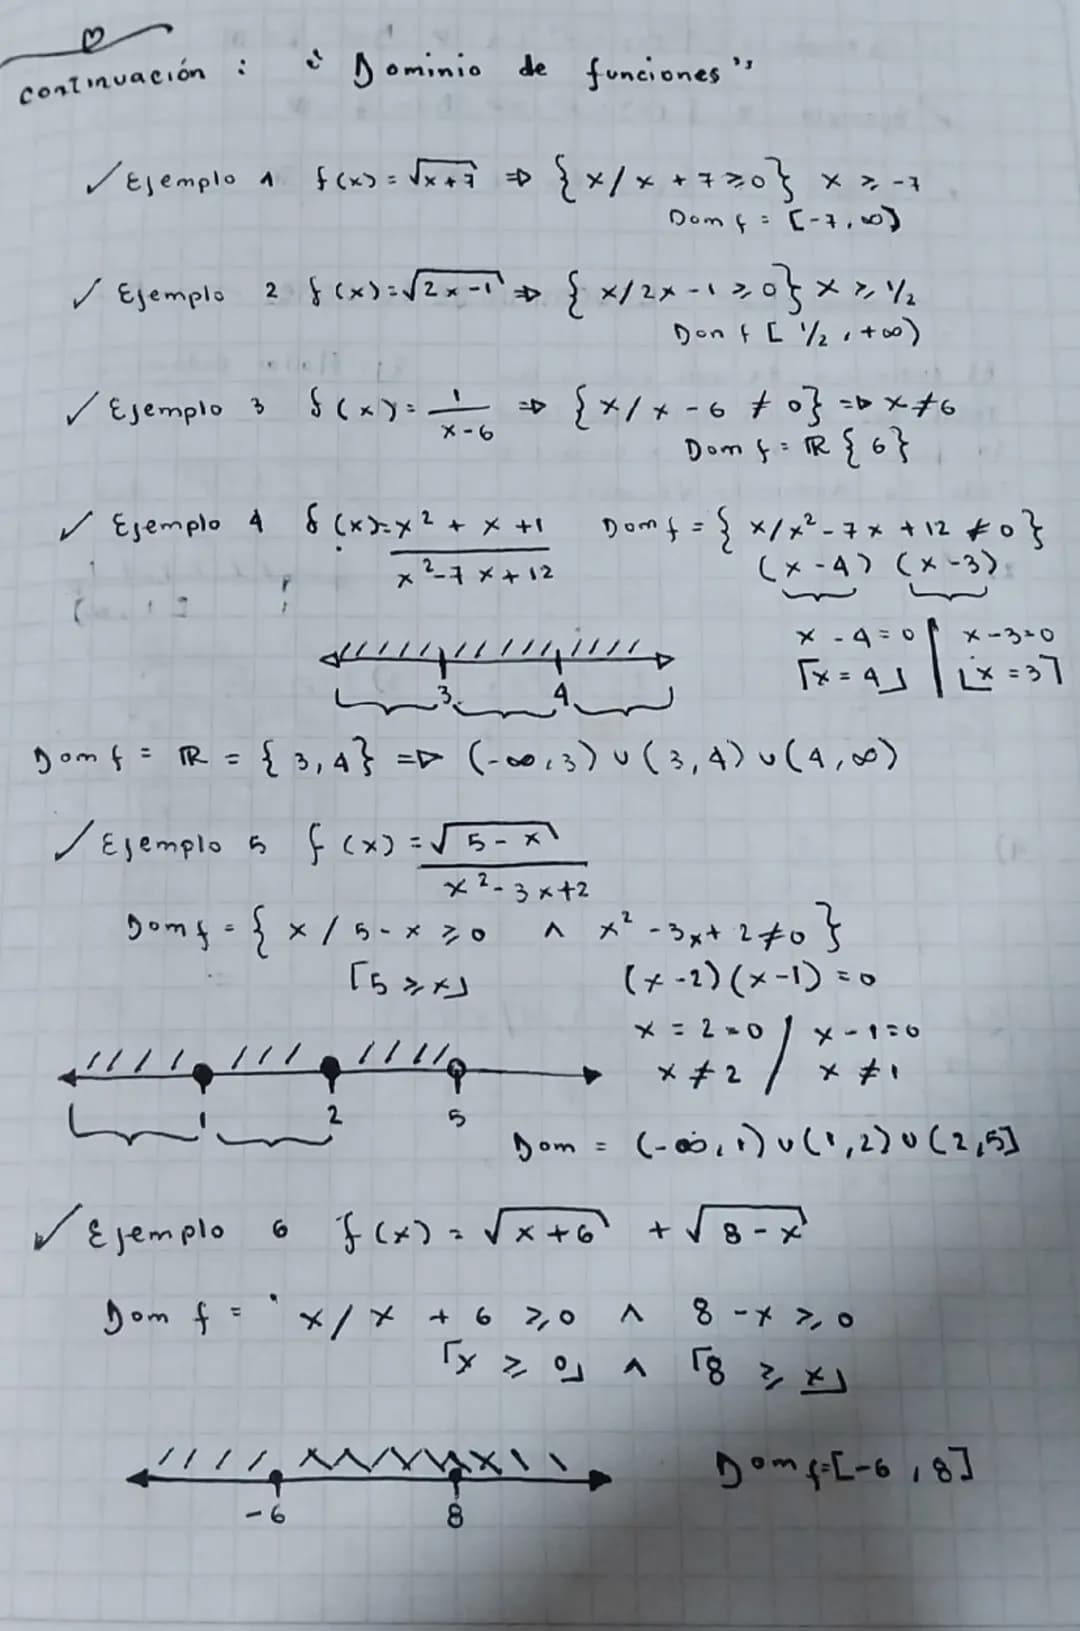 continuación : " Dominio de funciones "
✓ Ejemplo 1 f(x) = √x+7 ⇒ { x/x + 7 ≥ 0 } x ≥ -7
Dom f = [-7, ∞)
✓ Ejemplo 2 f(x) = √2x-1 ⇒ { x/2x - 1 ≥ 0 } x ≥ 1/2
Don f [ 1/2 , +∞)
✓ Ejemplo 3 f(x) = 1/(x-6) ⇒ { x/x - 6 ≠ 0 } ⇒ x ≠ 6
Dom f = ℝ { 6 }
✓ Ejemplo 4 f(x) = (x² + x +1)/(x² - 7x + 12) Dom f = { x/x² - 7x + 12 ≠ 0 }
(x - 4) (x - 3)
x - 4 = 0 | x - 3 = 0
⌈x = 4⌋ | ⌊x = 3⌉
3 4
Dom f = ℝ = { 3, 4 } ⇒ (-∞, 3) ∪ (3, 4) ∪ (4, ∞)
✓ Ejemplo 5 f(x) = √5 - x / (x² - 3x + 2)
Dom f = { x / 5 - x ≥ 0 ∧ x² - 3x + 2 ≠ 0 }
⌈5 ≥ x⌋ (x - 2)(x - 1) = 0
x = 2 = 0 / x - 1 = 0
x ≠ 2 / x ≠ 1
1 2 5
Dom = (-∞, 1) ∪ (1, 2) ∪ (2, 5]
✓ Ejemplo 6 f(x) = √x + 6 + √8 - x
Dom f = x / x + 6 ≥ 0 ∧ 8 - x ≥ 0
⌈x ≥ 0⌋ ∧ ⌈8 ≥ x⌋
-6 8
Dom f = [-6 , 8]